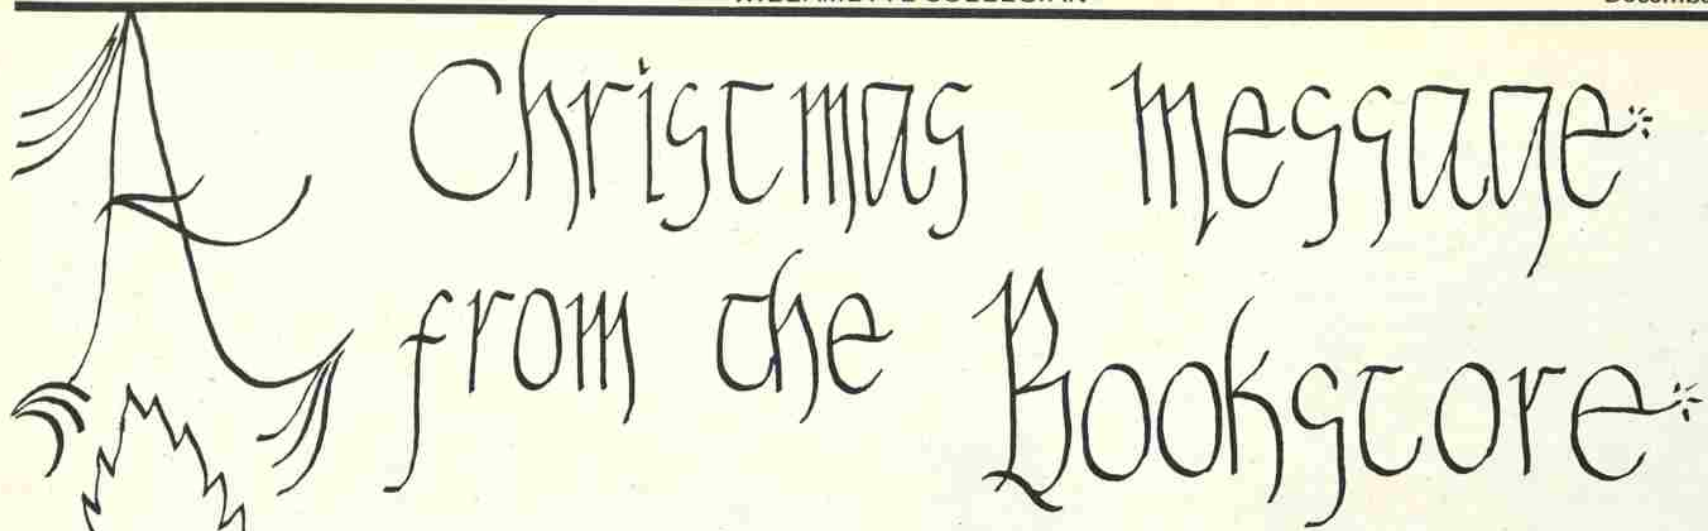 A Christmas message
from the Bookstore